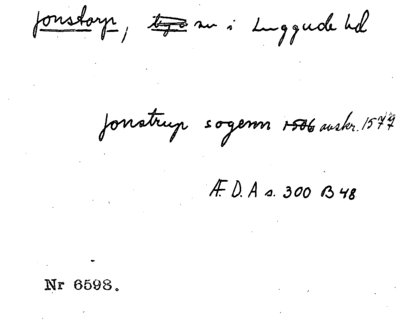 Jonstorp, sn i Luggude hd
Jonstrup sogenn 1506 avskr. 1577
Æ. D. A s. 300 B 48
Nr 6598.